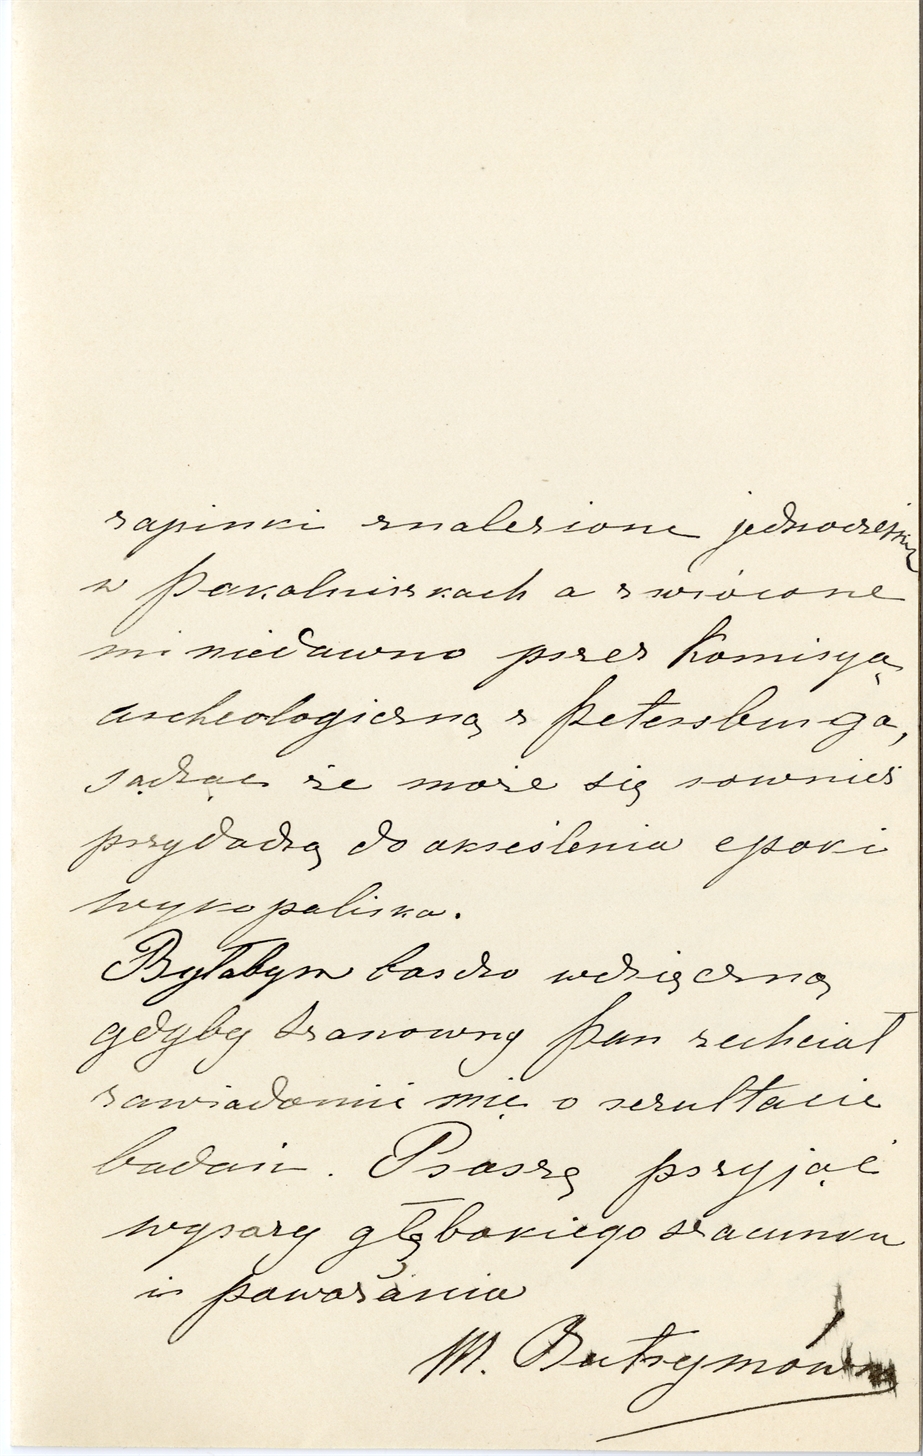 zapinki znalezione jednocześnie
w Pakalniszkach a zwrócone
mi niedawno przez Komisyą
archeologiczną z Petersburga,
sądząc że może się rownież
przydadzą do określenia epoki
wykopaliska.
Byłabym bardzo wdzięczną
gdyby Szanowny Pan zechciał
zawiadomić mię o rezultacie
badań. Proszę przyjąć
wyrazy głębokiego szacunku
i poważania
M. Butrymówna